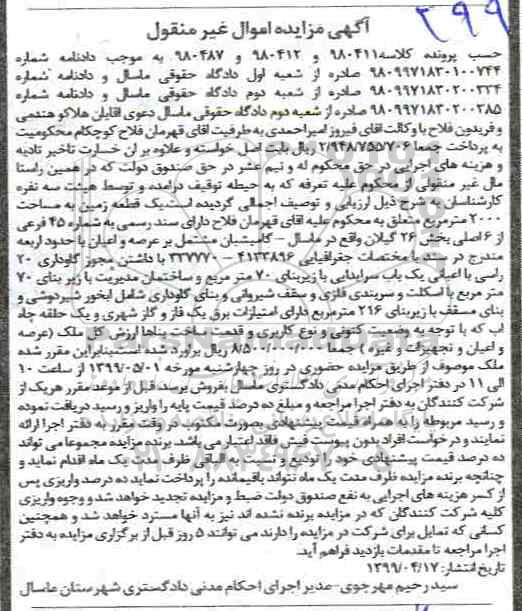 ۳۹۹
آگهی مزایده اموال غیر منقول
حسب پرونده کلاسه۹۸۰۴۱۱ و ۹۸۰۴۱۲ و ۹۸۰۴۸۷ به موجب دادنامه شماره
۹۸۰۹۹۷۱۸۳۰۱۰۰۷۴۴ صادره از شعبه اول دادگاه حقوقی ماسال و دادنامه شماره
۹۸۰۹۹۷۱۸۳۰۲۰۰۳۳۴ صادره از شعبه دوم دادگاه حقوقی ماسال و دادنامه شماره
۹۸۰۹۹۷۱۸۳۰۲۰۰۳۸۵ صادره از شعبه دوم دادگاه حقوقی ماسال دعوی آقایان هلاکو هندمی
و فریدون فلاح با وکالت آقای فیروز امیراحمدی به طرفیت آقای قهرمان فلاح کوچکام محکومیت
به پرداخت جمعا ۲/۹۴۸/۷۵۵/۷۰۶ ریال بابت اصل خواسته و علاوه بر آن خسارت تاخیر تادیه
و هزینه های اجرایی در حق محکوم له و نیم عشر در حق صندوق دولت که در همین راستا
مال غیر منقولی از محکوم علیه تعرفه که به حیطه توقیف درآمده و توسط هیئت سه نفره
کارشناسان به شرح ذیل ارزیابی و توصیف اجمالی گردیده است یک قطعه زمین به مساحت
۲۰۰۰ مترمربع متعلق به محکوم علیه آقای قهرمان فلاح دارای سند رسمی به شماره ۴۵ فرعی
از ۶ اصلی بخش ۲۶ گیلان واقع در ماسال – گامیشبان مشتمل بر عرصه و اعیان با حدود اربعه
مندرج در سند با مختصات جغرافیایی ۴۱۳۳۸۹۶ – ۳۳۷۷۷۰ با داشتن مجوز گاوداری ۲۰
راسی با اعیانی یک باب سرایداری با زیربنای ۷۰ متر مربع و ساختمان مدیریت با زیر بنای ۷۰
متر مربع با اسکلت و سربندی فلزی و سقف شیروانی و بنای گاوداری شامل آبخور شیردوشی و
بنای مسقف با زیربنای ۲۱۶ مترمربع دارای امتیازات برق یک فاز و گاز شهری و یک حلقه چاه
آب که با توجه به وضعیت کنونی و نوع کاربری و قدمت ساخت بناها ارزش کل ملک (عرصه
و اعیان و تجهیزات و غیره) جمعا ۸/۵۰۰/۰۰۰/۰۰۰ ریال برآورد شده است بنابراین مقرر شده
ملک موصوف از طریق مزایده حضوری در روز چهارشنبه مورخه ۱۳۹۹/۰۵/۰۱ از ساعت ۱۰
الی ۱۱ در دفتر اجرای احکام مدنی دادگستری ماسال بفروش برسد، قبل از موعد مقرر هر یک از
شرکت کنندگان به دفتر اجرا مراجعه و مبلغ ده درصد قیمت پایه را واریز و رسید دریافت نموده
و رسید مربوطه را به همراه قیمت پیشنهادی بصورت مکتوب در وقت مقرر به دفتر اجرا ارائه
نمایند و درخواست افراد بدون پیوست فیش فاقد اعتبار می باشد. برنده مزایده مجموعا می تواند
ده درصد قیمت پیشنهادی خود را تودیع و نسبت به الباقی ظرف مدت یک ماه اقدام نماید و
چنانچه برنده مزایده ظرف مدت یک ماه نتواند باقیمانده را پرداخت نماید ده درصد واریزی پس
از کسر هزینه های اجرایی به نفع صندوق دولت ضبط و مزایده تجدید خواهد شد و وجوه واریزی
کلیه شرکت کنندگان که در مزایده برنده نشده اند نیز به آنها مسترد خواهد شد و همچنین
کسانی که تمایل برای شرکت در مزایده را دارند می توانند ۵ روز قبل از برگزاری مزایده به دفتر
اجرا مراجعه تا مقدمات بازدید فراهم آید.
تاریخ انتشار: ۱۳۹۹/۰۴/۱۷
سید رحیم مهرجوی-مدیر اجرای احکام مدنی دادگستری شهرستان ماسال